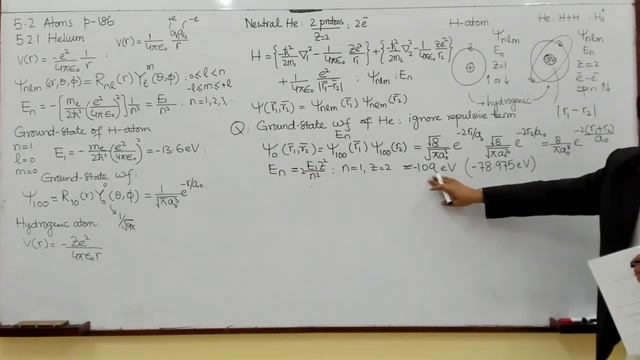 5.2 Atoms p-186
5.2.1 Helium
V(r) = -e²/4πε₀ 1/r
V(r) = 1/4πε₀ q₁q₂/r
+e -e
Ψnlm(r,θ,Φ) = Rnl(r) Yₗᵐ(θ,Φ) , 0≤l<n
-l≤m≤+l
En = -[me/2ħ² (e²/4πε₀)²] 1/n² = E₁/n² , n=1,2,3,...
Ground-State of H-atom
n=1
l=0
m=0
E₁ = -me/2ħ² (e²/4πε₀)² = -13.6 eV
Ground-state wf:
Ψ100 = R10(r) Y₀⁰(θ,Φ) = 1/√πa₀³ e^-r/a₀
1/√4π
Hydrogenic atom:
V(r) = -Ze²/4πε₀r
Neutral He: 2 protons, 2ē
Z=2
H = {-ħ²/2m₁ ∇₁² - 1/4πε₀ Ze²/r₁} + {-ħ²/2m₂ ∇₂² - 1/4πε₀ Ze²/r₂}
+ 1/4πε₀ e²/|r₁-r₂| ; Ψnlm : En
Ψ(r₁,r₂) = Ψnlm(r₁) Ψnlm(r₂)
H-atom
Ψnlm
En
Z=1
↑ or ↓
hydrogenic
He: H+H
Ψnlm
En
Z=2
ē-ē
spin ↑↓
|r₁-r₂|
Q: Ground-state wf of He: ignore repulsive term
En
Ψ₀(r₁,r₂) = Ψ100(r₁) Ψ100(r₂) = √8/√πa₀³ e^-2r₁/a₀ √8/√πa₀³ e^-2r₂/a₀ = 8/πa₀³ e^-2(r₁+r₂)/a₀
En = 2 E₁Z²/n² ; n=1, Z=2 = -109 eV (-78.975 eV)